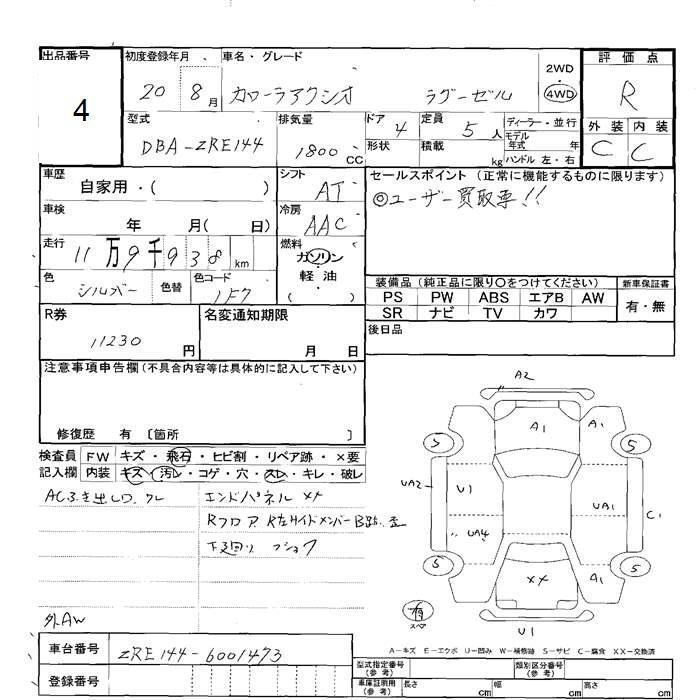 出品番号 初度登録年月 車名・グレード 評価点
4 20 8月 カローラアクシオ ラグーゼル 2WD 4WD R
型式 排気量 ドア 定員 ディーラー・並行 外装 内装
DBA-ZRE144 1800CC 4 5人 モデル年式 年 C C
形状 積載 kg ハンドル 左・右
車歴 シフト セールスポイント（正常に機能するものに限ります）
自家用・( ) AT ◎ユーザー買取車!!
車検 冷房
年 月( 日) AAC
走行 燃料
11万9千938km ガソリン・軽油
( )
色 色替 色コード 装備品（純正品に限り○をつけてください） 新車保証書
シルバー 1F7 PS PW ABS エアB AW 有・無
SR ナビ TV カワ
R券 名変通知期限 後日品
11230円 月 日
注意事項申告欄（不具合内容等は具体的に記入して下さい）
修復歴 有 〔箇所 〕
検査員 FW キズ・飛石・ヒビ割・リペア跡・×要
記入欄 内装 キズ・汚レ・コゲ・穴・スレ・キレ・破レ
ACふき出し口 ワレ エンドパネル ××
Rフロア R左サイドメンバー
下廻り
外AW
A2
A1 A1
5 5
UA2 U1 UA1 C1
UA4
5 5
×× A1
有
スペア
U1
A-キズ E-エクボ U-凹み W-補修跡 S-サビ C-腐食 XX-交換済
車台番号 ZRE144-6001473
登録番号
型式指定番号（参考） 類別区分番号（参考）
車庫証明用（参考） 長さ cm 幅 cm 高さ cm